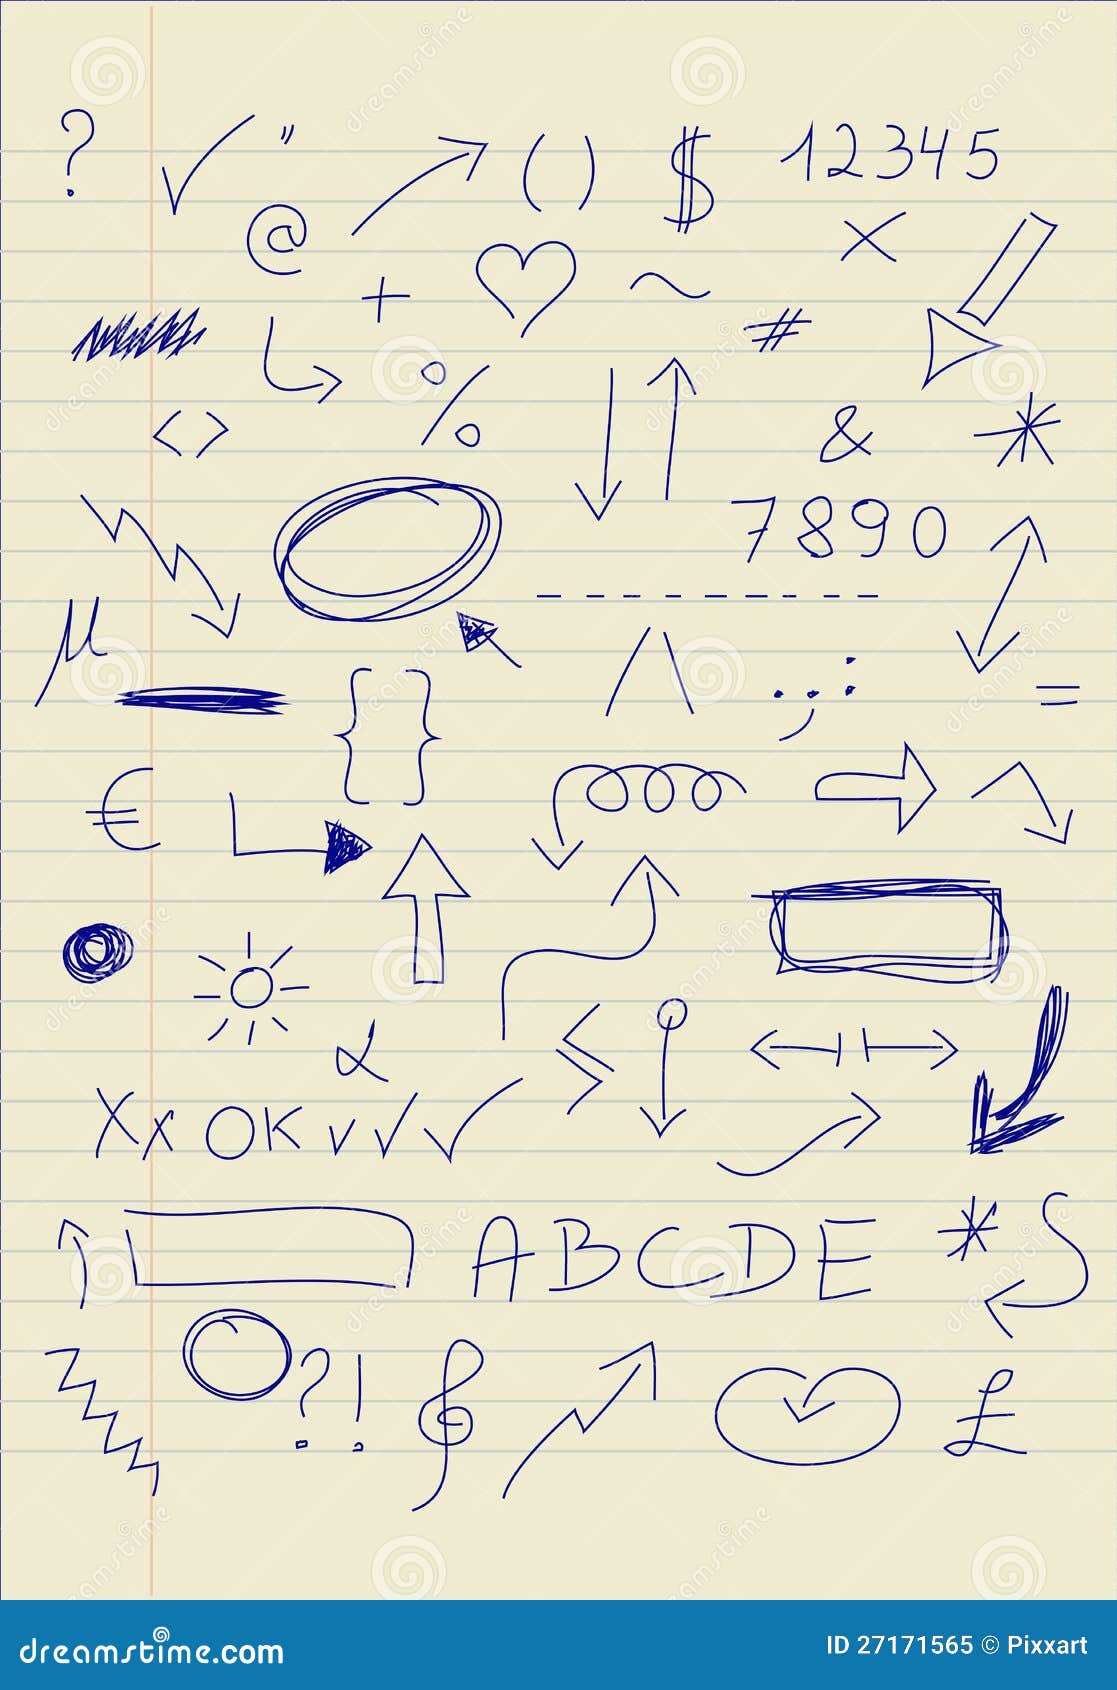 ? ✓ " ( ) $ 12345
@ ×
+ ♥ ~ #
< > % & *
7890
μ
{ } ∧ . , : =
€
α
X x OK v ✓ ✓
ABCDE *
?! £
dreamstime.com
ID 27171565 © Pixxart